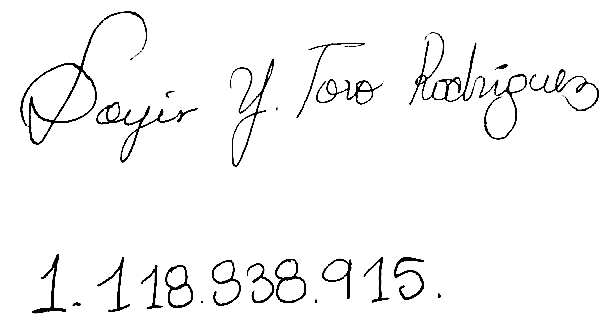 Sayir Y. Toro Rodriguez
1.118.838.915.